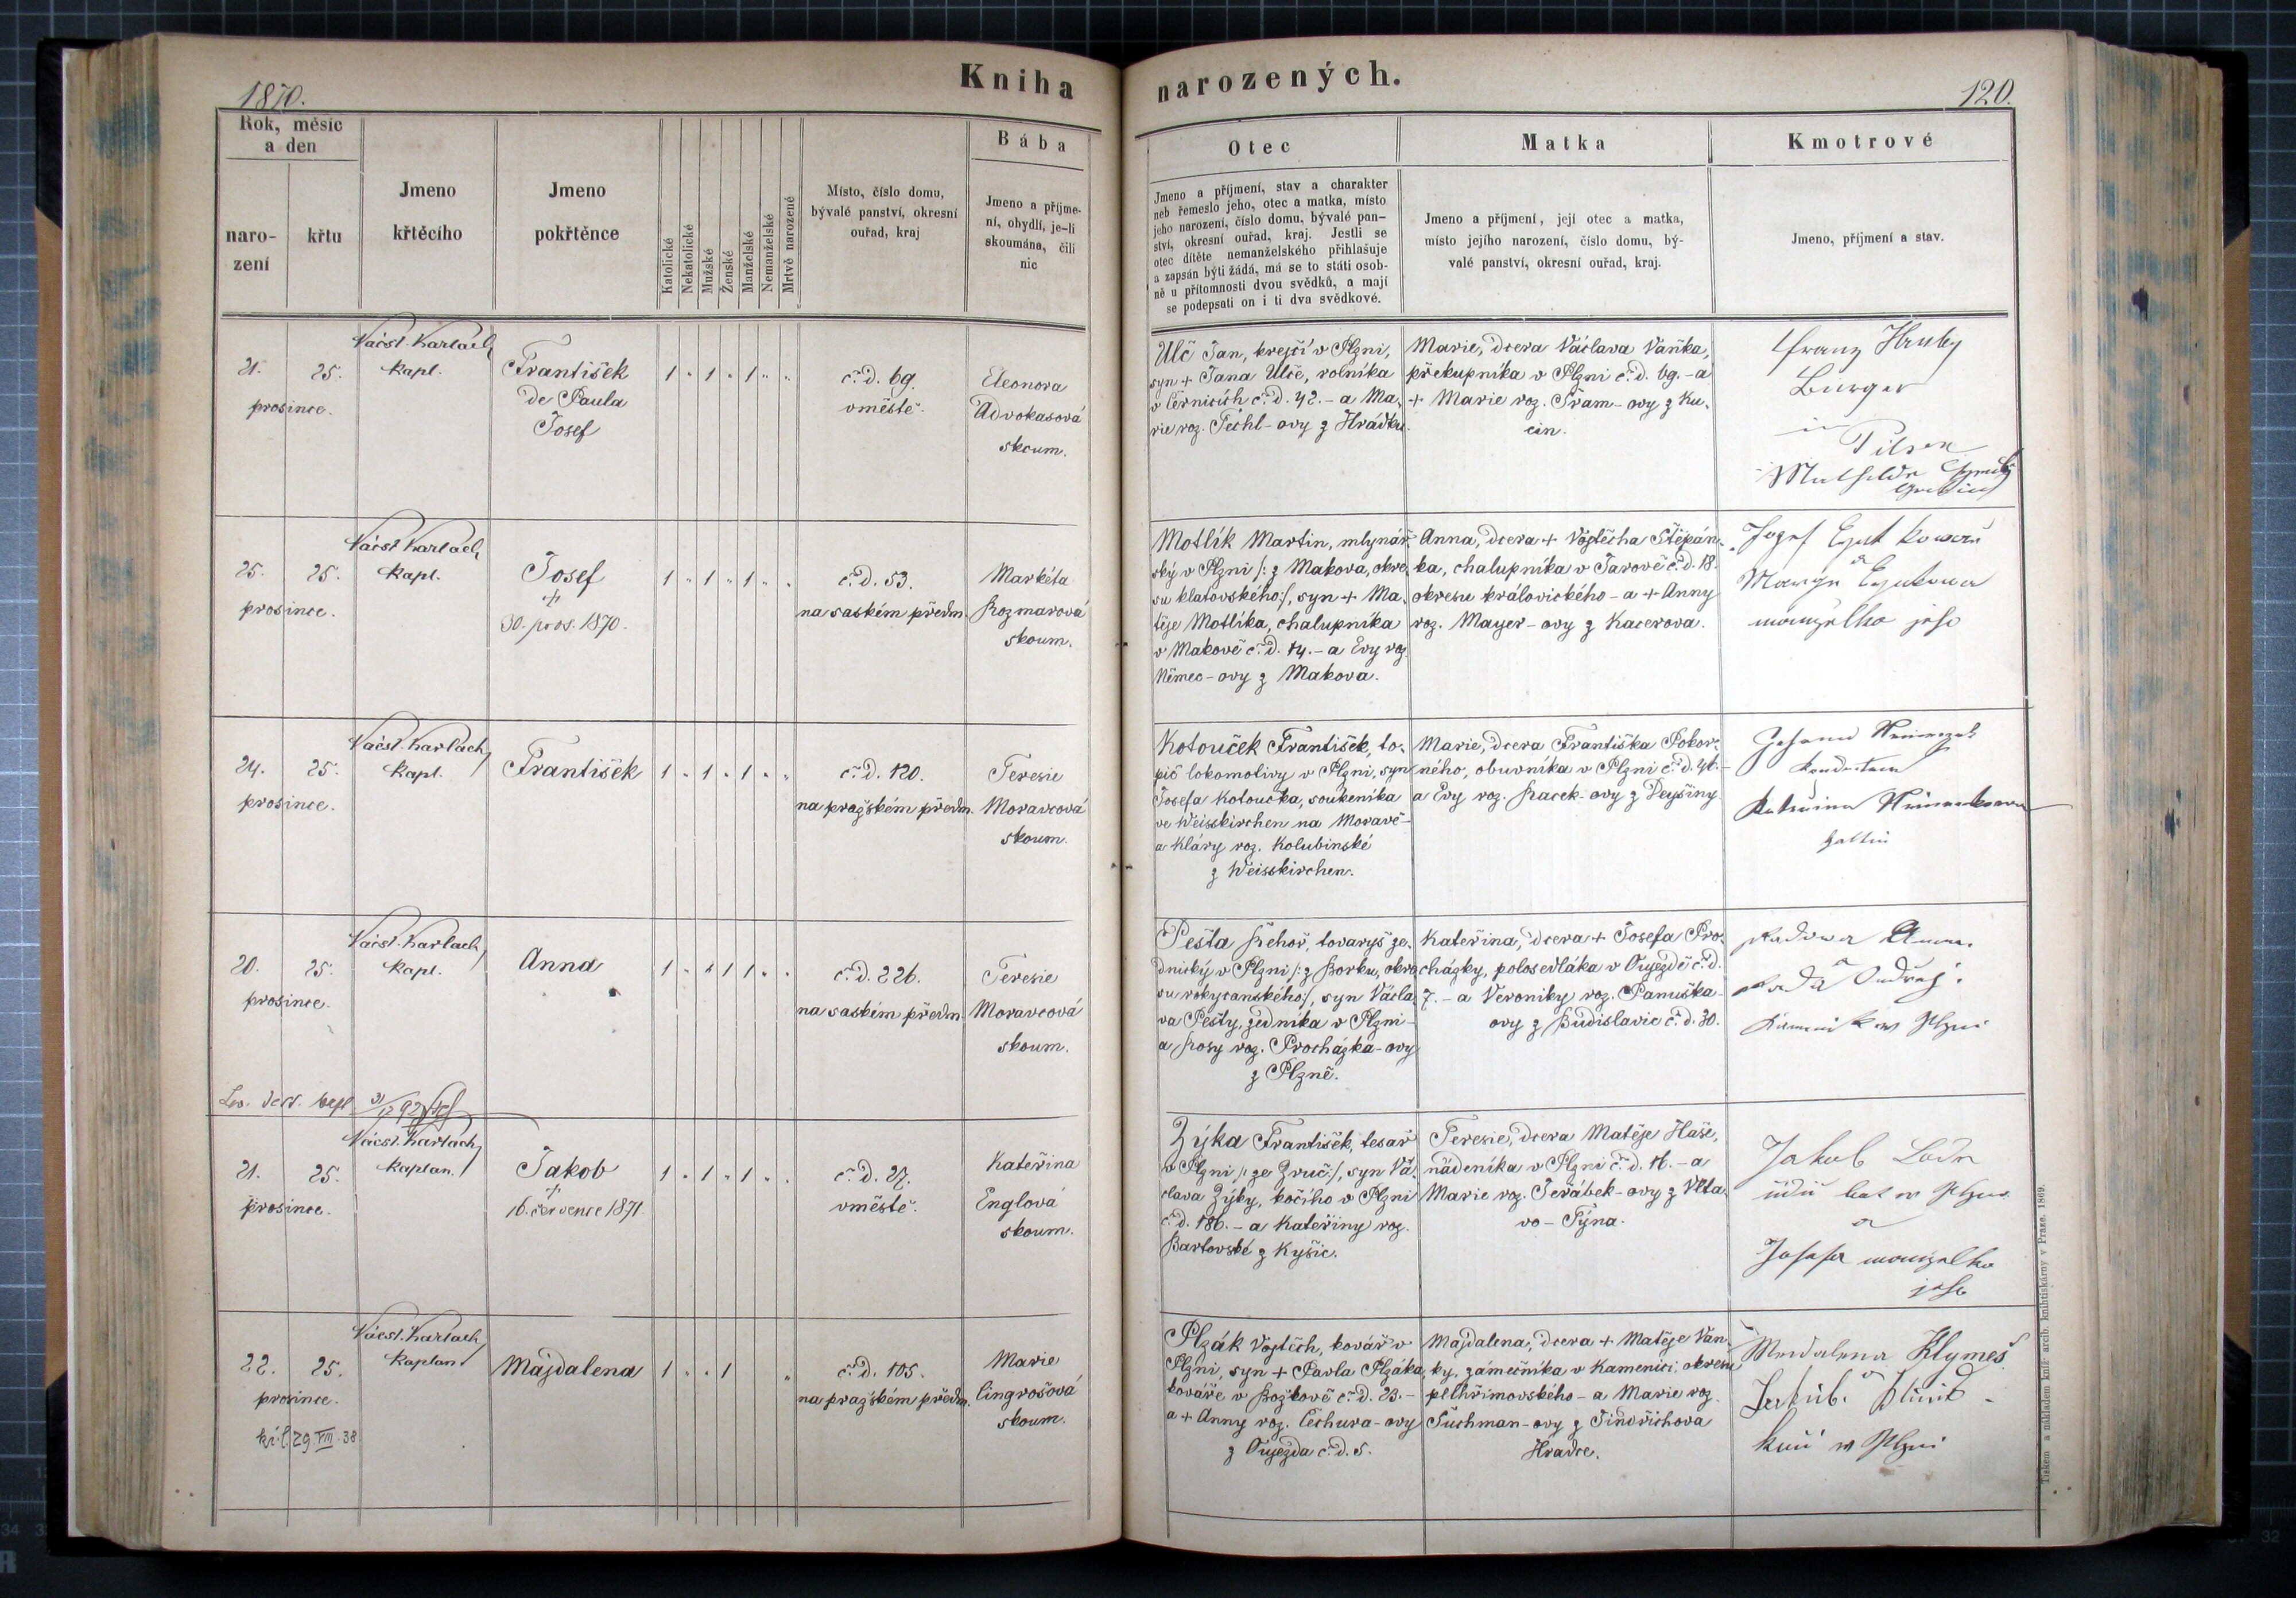 1870.
Kniha narozených.
120.
Rok, měsíc
a den
naro-
zení
křtu
Jmeno
křtěcího
Jmeno
pokřtěnce
Katolické
Nekatolické
Mužské
Ženské
Manželské
Nemanželské
Mrtvě narozené
Místo, číslo domu,
bývalé panství, okresní
ouřad, kraj
Bába
Jmeno a příjme-
ní, obydlí, je-li
skoumána, čili
nic
Otec
Jmeno a příjmení, stav a charakter
neb řemeslo jeho, otec a matka, místo
jeho narození, číslo domu, bývalé pan-
ství, okresní ouřad, kraj. Jestli se
otec dítěte nemanželského přihlašuje
a zapsán býti žádá, má se to státi osob-
ně u přítomnosti dvou svědků, a mají
se podepsati on i ti dva svědkové.
Matka
Jmeno a příjmení, její otec a matka,
místo jejího narození, číslo domu, bý-
valé panství, okresní ouřad, kraj.
Kmotrové
Jmeno, příjmení a stav.
21. 25.
prosince.
Václ. Karlach
kapl.
František
de Paula
Josef
1 " 1 " 1 " "
č. d. 69.
v městě.
Eleonora
Advokasová
skoum.
Ulč Jan, krejčí v Plzni,
syn + Jana Ulče, rolníka
v Černicích č. d. 42. - a Ma-
rie roz. Těchl-ovy z Hrádku.
Marie, dcera Václava Vaňka,
překupníka v Plzni č. d. 69. - a
+ Marie roz. Šram-ovy z Ku-
cin.
Franz Hruby
Burger
in
Pilsen
25. 25.
prosince.
Václ. Karlach
kapl.
Josef
+
30. pros. 1870.
1 " 1 " 1 " "
č. d. 53.
na saském předm.
Markéta
Rozmarová
skoum.
Motlík Martin, mlynář-
ský v Plzni /: z Makova, okre-
su klatovského :/, syn + Ma-
těje Motlíka, chalupníka
v Makově č. d. 14. - a Evy roz.
Němec-ovy z Makova.
Anna, dcera + Vojtěcha Štěpán-
ka, chalupníka v Jarově č. d. 18.
okresu královického - a + Anny
roz. Mayer-ovy z Kacerova.
manželka jeho
24. 25.
prosince.
Václ. Karlach
kapl.
František
1 " 1 " 1 " "
č. d. 120.
na pražském předm.
Teresie
Moravcová
skoum.
Kotouček František, to-
pič lokomotivy v Plzni, syn
Josefa Kotoučka, soukeníka
ve Weisskirchen na Moravě-
a Kláry roz. Kolubinské
z Weisskirchen.
Marie, dcera Františka Pokor-
ného, obuvníka v Plzni č. d. 46. -
a Evy roz. Racek-ovy z Deyšiny
Gattin
20. 25.
prosince.
Václ. Karlach
kapl.
Anna
1 " " 1 1 " "
č. d. 226.
na saském předm.
Teresie
Moravcová
skoum.
Pešta Řehoř, tovaryš ze-
dnický v Plzni /: z Borku, okre-
su rokycanského :/, syn Václa-
va Pešty, zedníka v Plzni -
a Rosy roz. Procházka-ovy
z Plzně.
Kateřina, dcera + Josefa Pro-
cházky, polosedláka v Oujezdě č. d.
7. - a Veroniky roz. Panuška-
ovy z Budislavic č. d. 30.
21. 25.
prosince.
Václ. Karlach
kaplan.
Jakob
+
16. července 1871.
1 " 1 " 1 " "
č. d. 27.
v městě.
Kateřina
Englová
skoum.
Zýka František, tesař
v Plzni /: ze Zruč :/, syn Vá-
clava Zýky, kočího v Plzni
č. d. 186. - a Kateřiny roz.
Bartovské z Kyšic.
Teresie, dcera Matěje Haše,
nádeníka v Plzni č. d. 16. - a
Marie roz. Jeřábek-ovy z Vlta-
vo-Týna.
Jakob
a
Josefa manželka
jeho
22. 25.
prosince.
Václ. Karlach
kaplan
Majdalena
1 " " 1 "
č. d. 105.
na pražském předm.
Marie
Cingrošová
skoum.
Plzák Vojtěch, kovář v
Plzni, syn + Pavla Plzáka,
kováře v Božkově č. d. 23. -
a + Anny roz. Čechura-ovy
z Oujezda č. d. 5.
Majdalena, dcera + Matěje Van-
ky, zámečníka v Kamenici okresu
pelhřimovského - a Marie roz.
Šuchman-ovy z Jindřichova
Hradce.
Klymeš
Tiskem a nákladem kníž. arcib. knihtiskárny v Praze. 1869.